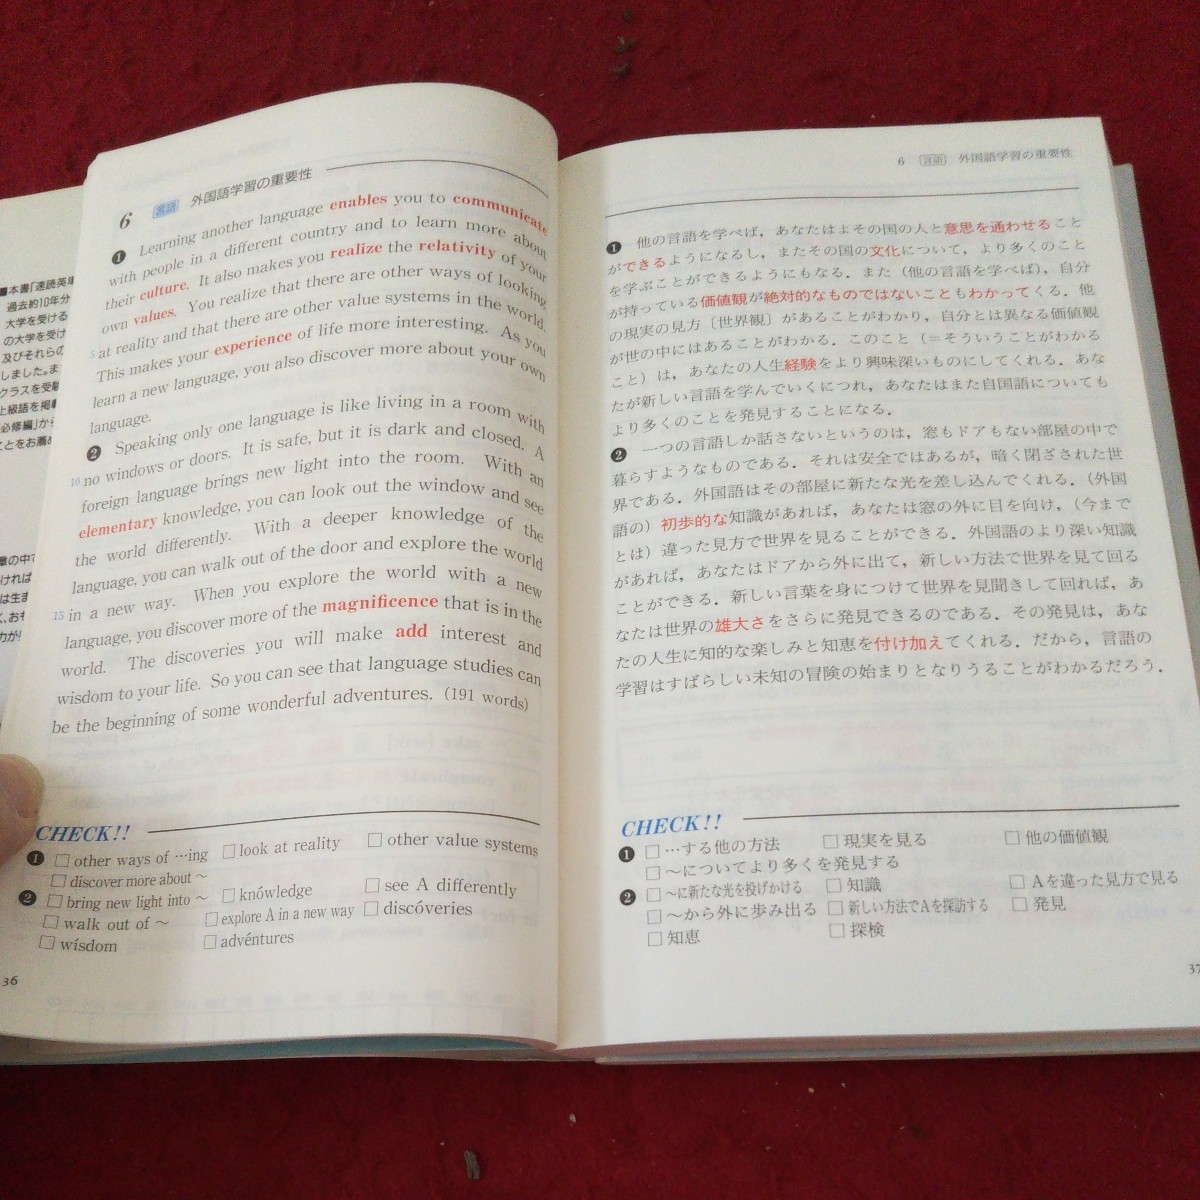 ■本書「速読英単
過去約10年分
大学を受ける
の大学を受け
及びそれらの
しました。ま
クラスを受験
上級語を掲載
必修編」から
ことをお薦め
章の中で
ければ
は生ま
6 言語 外国語学習の重要性
❶ Learning another language enables you to communicate
with people in a different country and to learn more about
their culture. It also makes you realize the relativity of your
own values. You realize that there are other ways of looking
5 at reality and that there are other value systems in the world.
This makes your experience of life more interesting. As you
learn a new language, you also discover more about your own
language.
❷ Speaking only one language is like living in a room with
10 no windows or doors. It is safe, but it is dark and closed. A
foreign language brings new light into the room. With an
elementary knowledge, you can look out the window and see
the world differently. With a deeper knowledge of the
language, you can walk out of the door and explore the world
15 in a new way. When you explore the world with a new
language, you discover more of the magnificence that is in the
world. The discoveries you will make add interest and
wisdom to your life. So you can see that language studies can
be the beginning of some wonderful adventures. (191 words)
CHECK!!
❶ □ other ways of …ing □ look at reality □ other value systems
□ discover more about ～
❷ □ bring new light into ～ □ knówledge □ see A differently
□ walk out of ～ □ explore A in a new way □ discóveries
□ wísdom □ advéntures
36
6 言語 外国語学習の重要性
❶ 他の言語を学べば，あなたはよその国の人と意思を通わせること
ができるようになるし，またその国の文化について，より多くのこと
を学ぶことができるようにもなる．また（他の言語を学べば），自分
が持っている価値観が絶対的なものではないこともわかってくる．他
の現実の見方〔世界観〕があることがわかり，自分とは異なる価値観
が世の中にはあることがわかる．このこと（＝そういうことがわかる
こと）は，あなたの人生経験をより興味深いものにしてくれる．あな
たが新しい言語を学んでいくにつれ，あなたはまた自国語についても
より多くのことを発見することになる．
❷ 一つの言語しか話さないというのは，窓もドアもない部屋の中で
暮らすようなものである．それは安全ではあるが，暗く閉ざされた世
界である．外国語はその部屋に新たな光を差し込んでくれる．（外国
語の）初歩的な知識があれば，あなたは窓の外に目を向け，（今まで
とは）違った見方で世界を見ることができる．外国語のより深い知識
があれば，あなたはドアから外に出て，新しい方法で世界を見て回る
ことができる．新しい言葉を身につけて世界を見聞きして回れば，あ
なたは世界の雄大さをさらに発見できるのである．その発見は，あな
たの人生に知的な楽しみと知恵を付け加えてくれる．だから，言語の
学習はすばらしい未知の冒険の始まりとなりうることがわかるだろう．
CHECK!!
❶ □ …する他の方法 □ 現実を見る □ 他の価値観
□ ～についてより多くを発見する
❷ □ ～に新たな光を投げかける □ 知識 □ Aを違った見方で見る
□ ～から外に歩み出る □ 新しい方法でAを探訪する □ 発見
□ 知恵 □ 探検
37